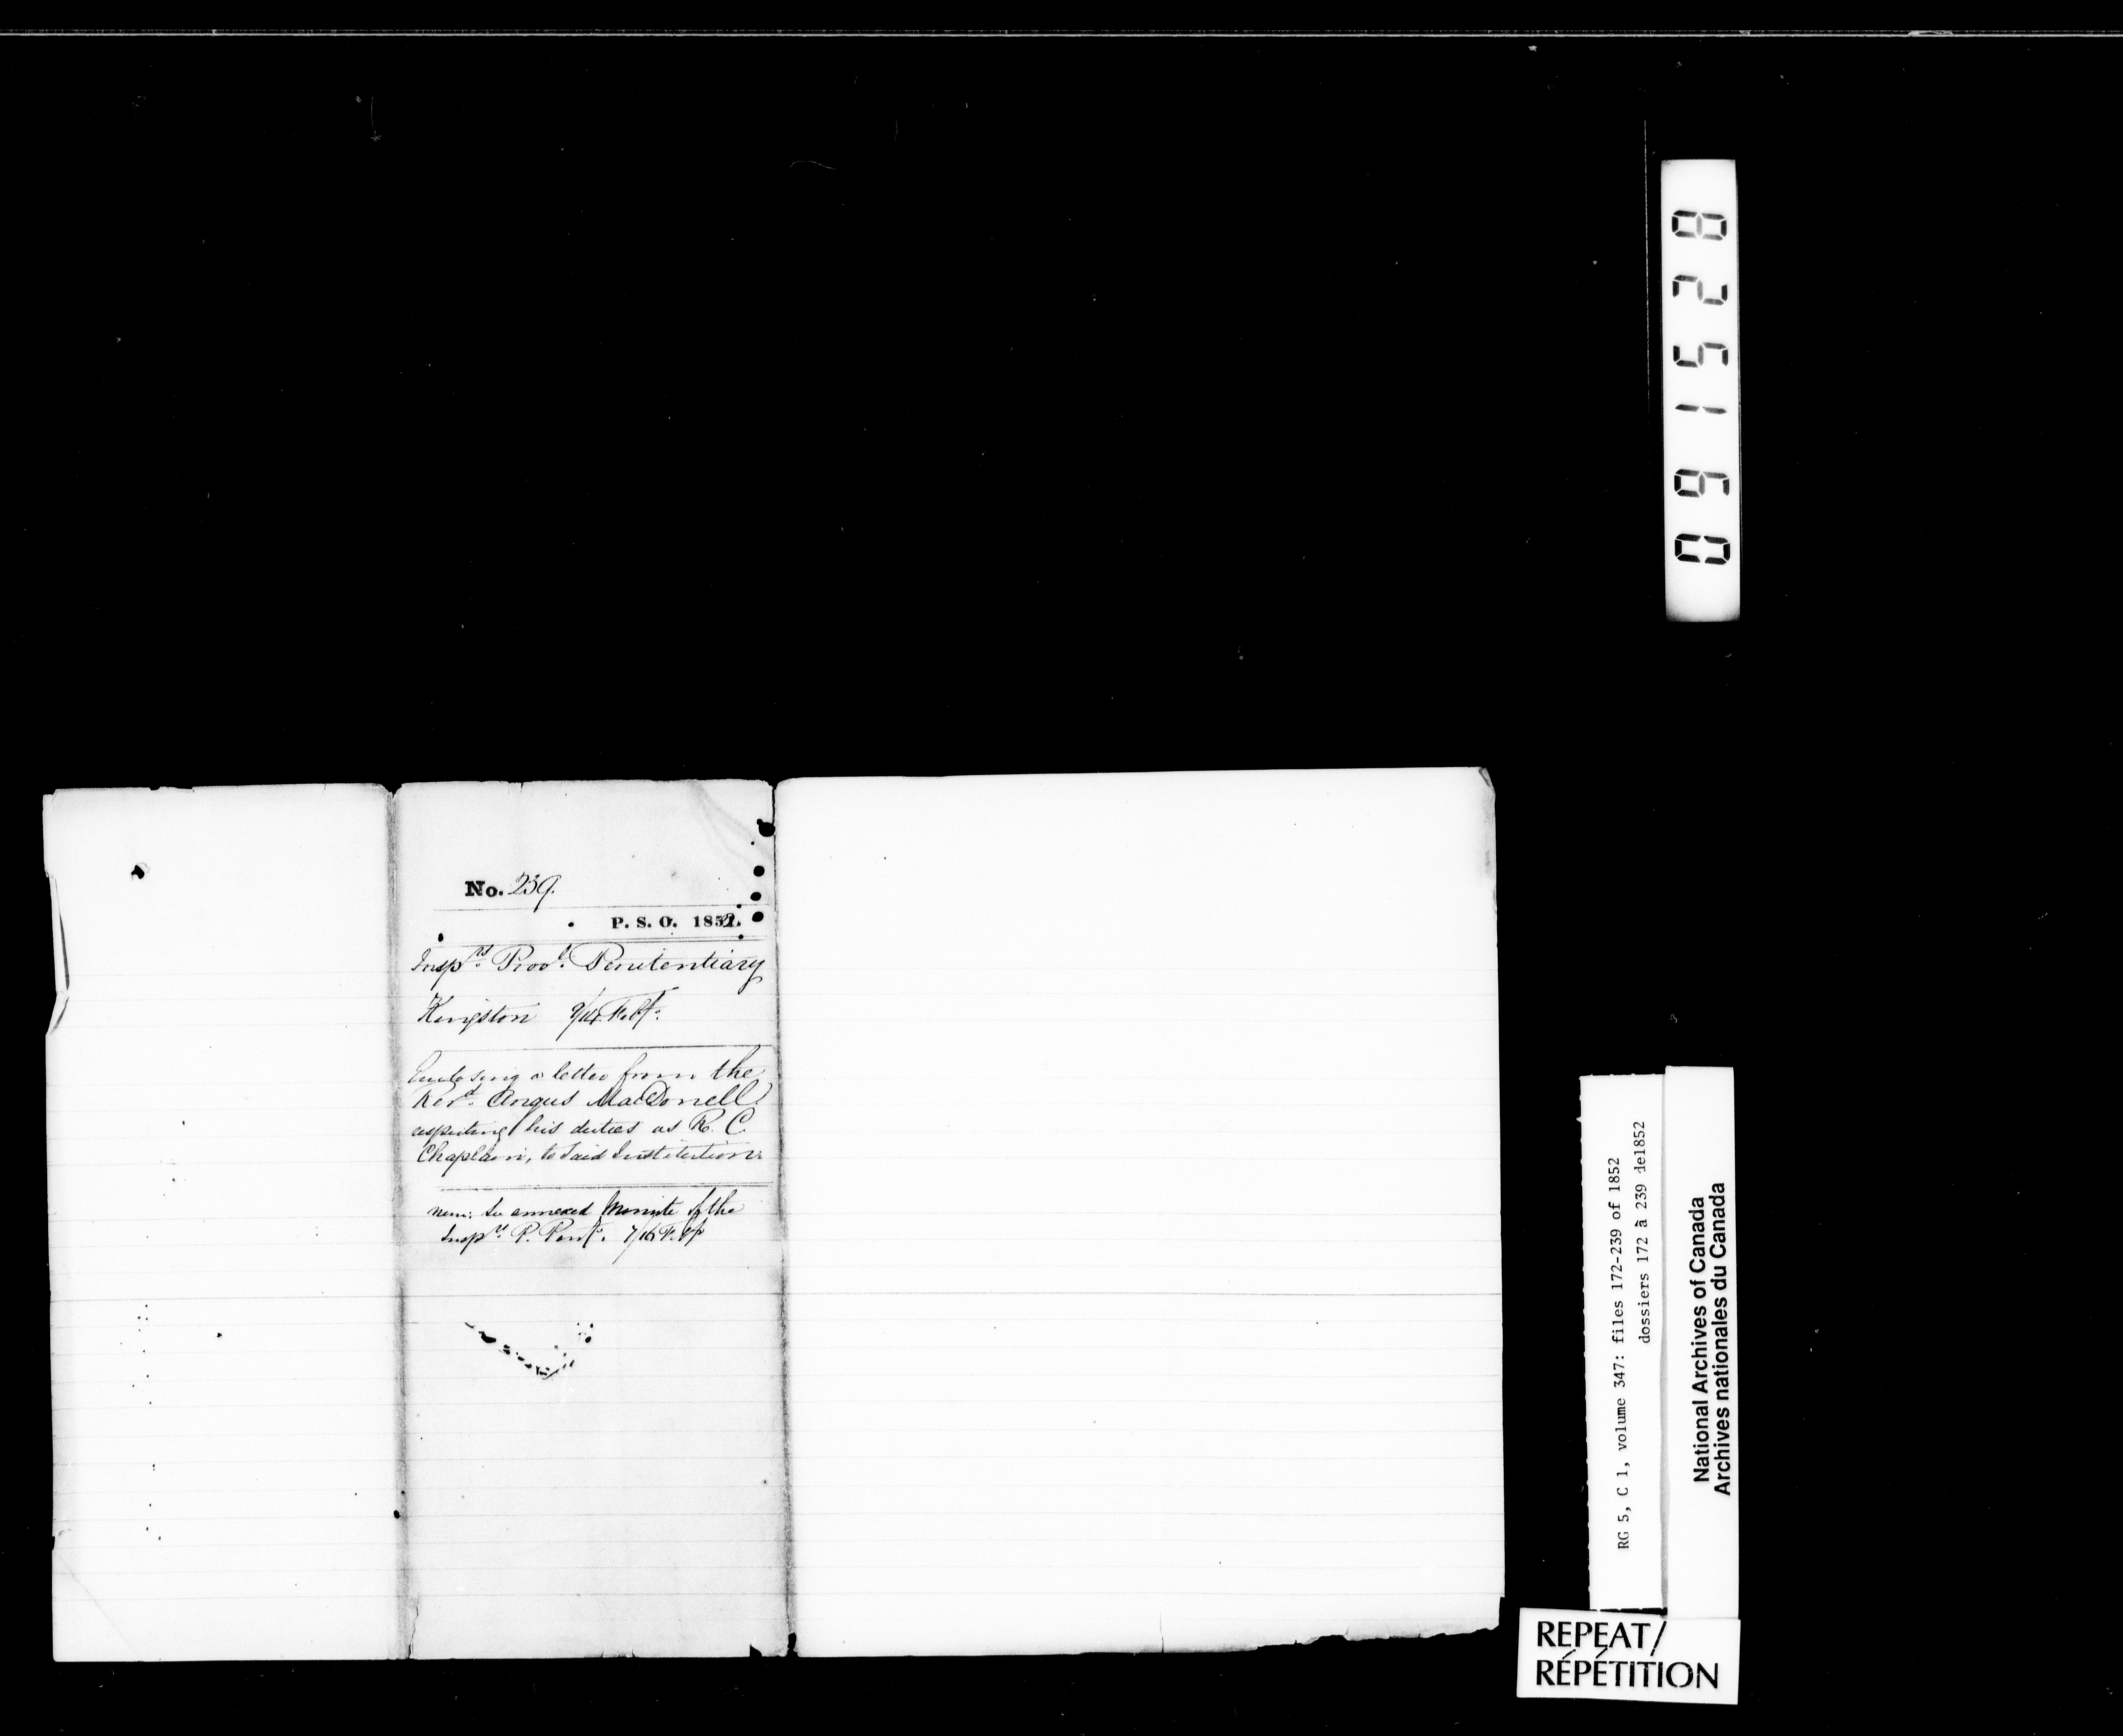 No. 239.
P. S. O. 1852.
Insprs. Provl. Penitentiary
Kingston 9/14 Feby.
Enclosing a letter from the
Revd. Angus MacDonell
respecting his duties as R. C.
Chaplain, to said Institution.
Mem: See annexed Minute of the
Insprs. P. Peny. 7/16 Feby
091528
RG 5, C 1, volume 347: files 172-239 of 1852
dossiers 172 à 239 de1852
National Archives of Canada
Archives nationales du Canada
REPEAT/
RÉPÉTITION